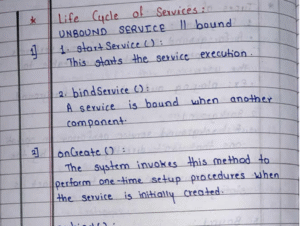 * Life Cycle of Services:
UNBOUND SERVICE || bound
1] 1. startService():
This starts the service execution.
2. bindService():
A service is bound when another
component.
2] onCreate():
The system invokes this method to
perform one-time setup procedures when
the service is initially created.